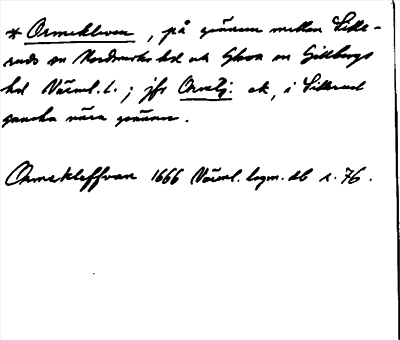 * Ormekleven, på gränsen mellan Sille-
ruds sn Nordmarks hd och Glava sn Gillbergs
hd Värml. l.; jfr ek, i Sillerud
ganska nära gränsen.
Ormekleffvan 1666 Värml. lagm. db s. 76.